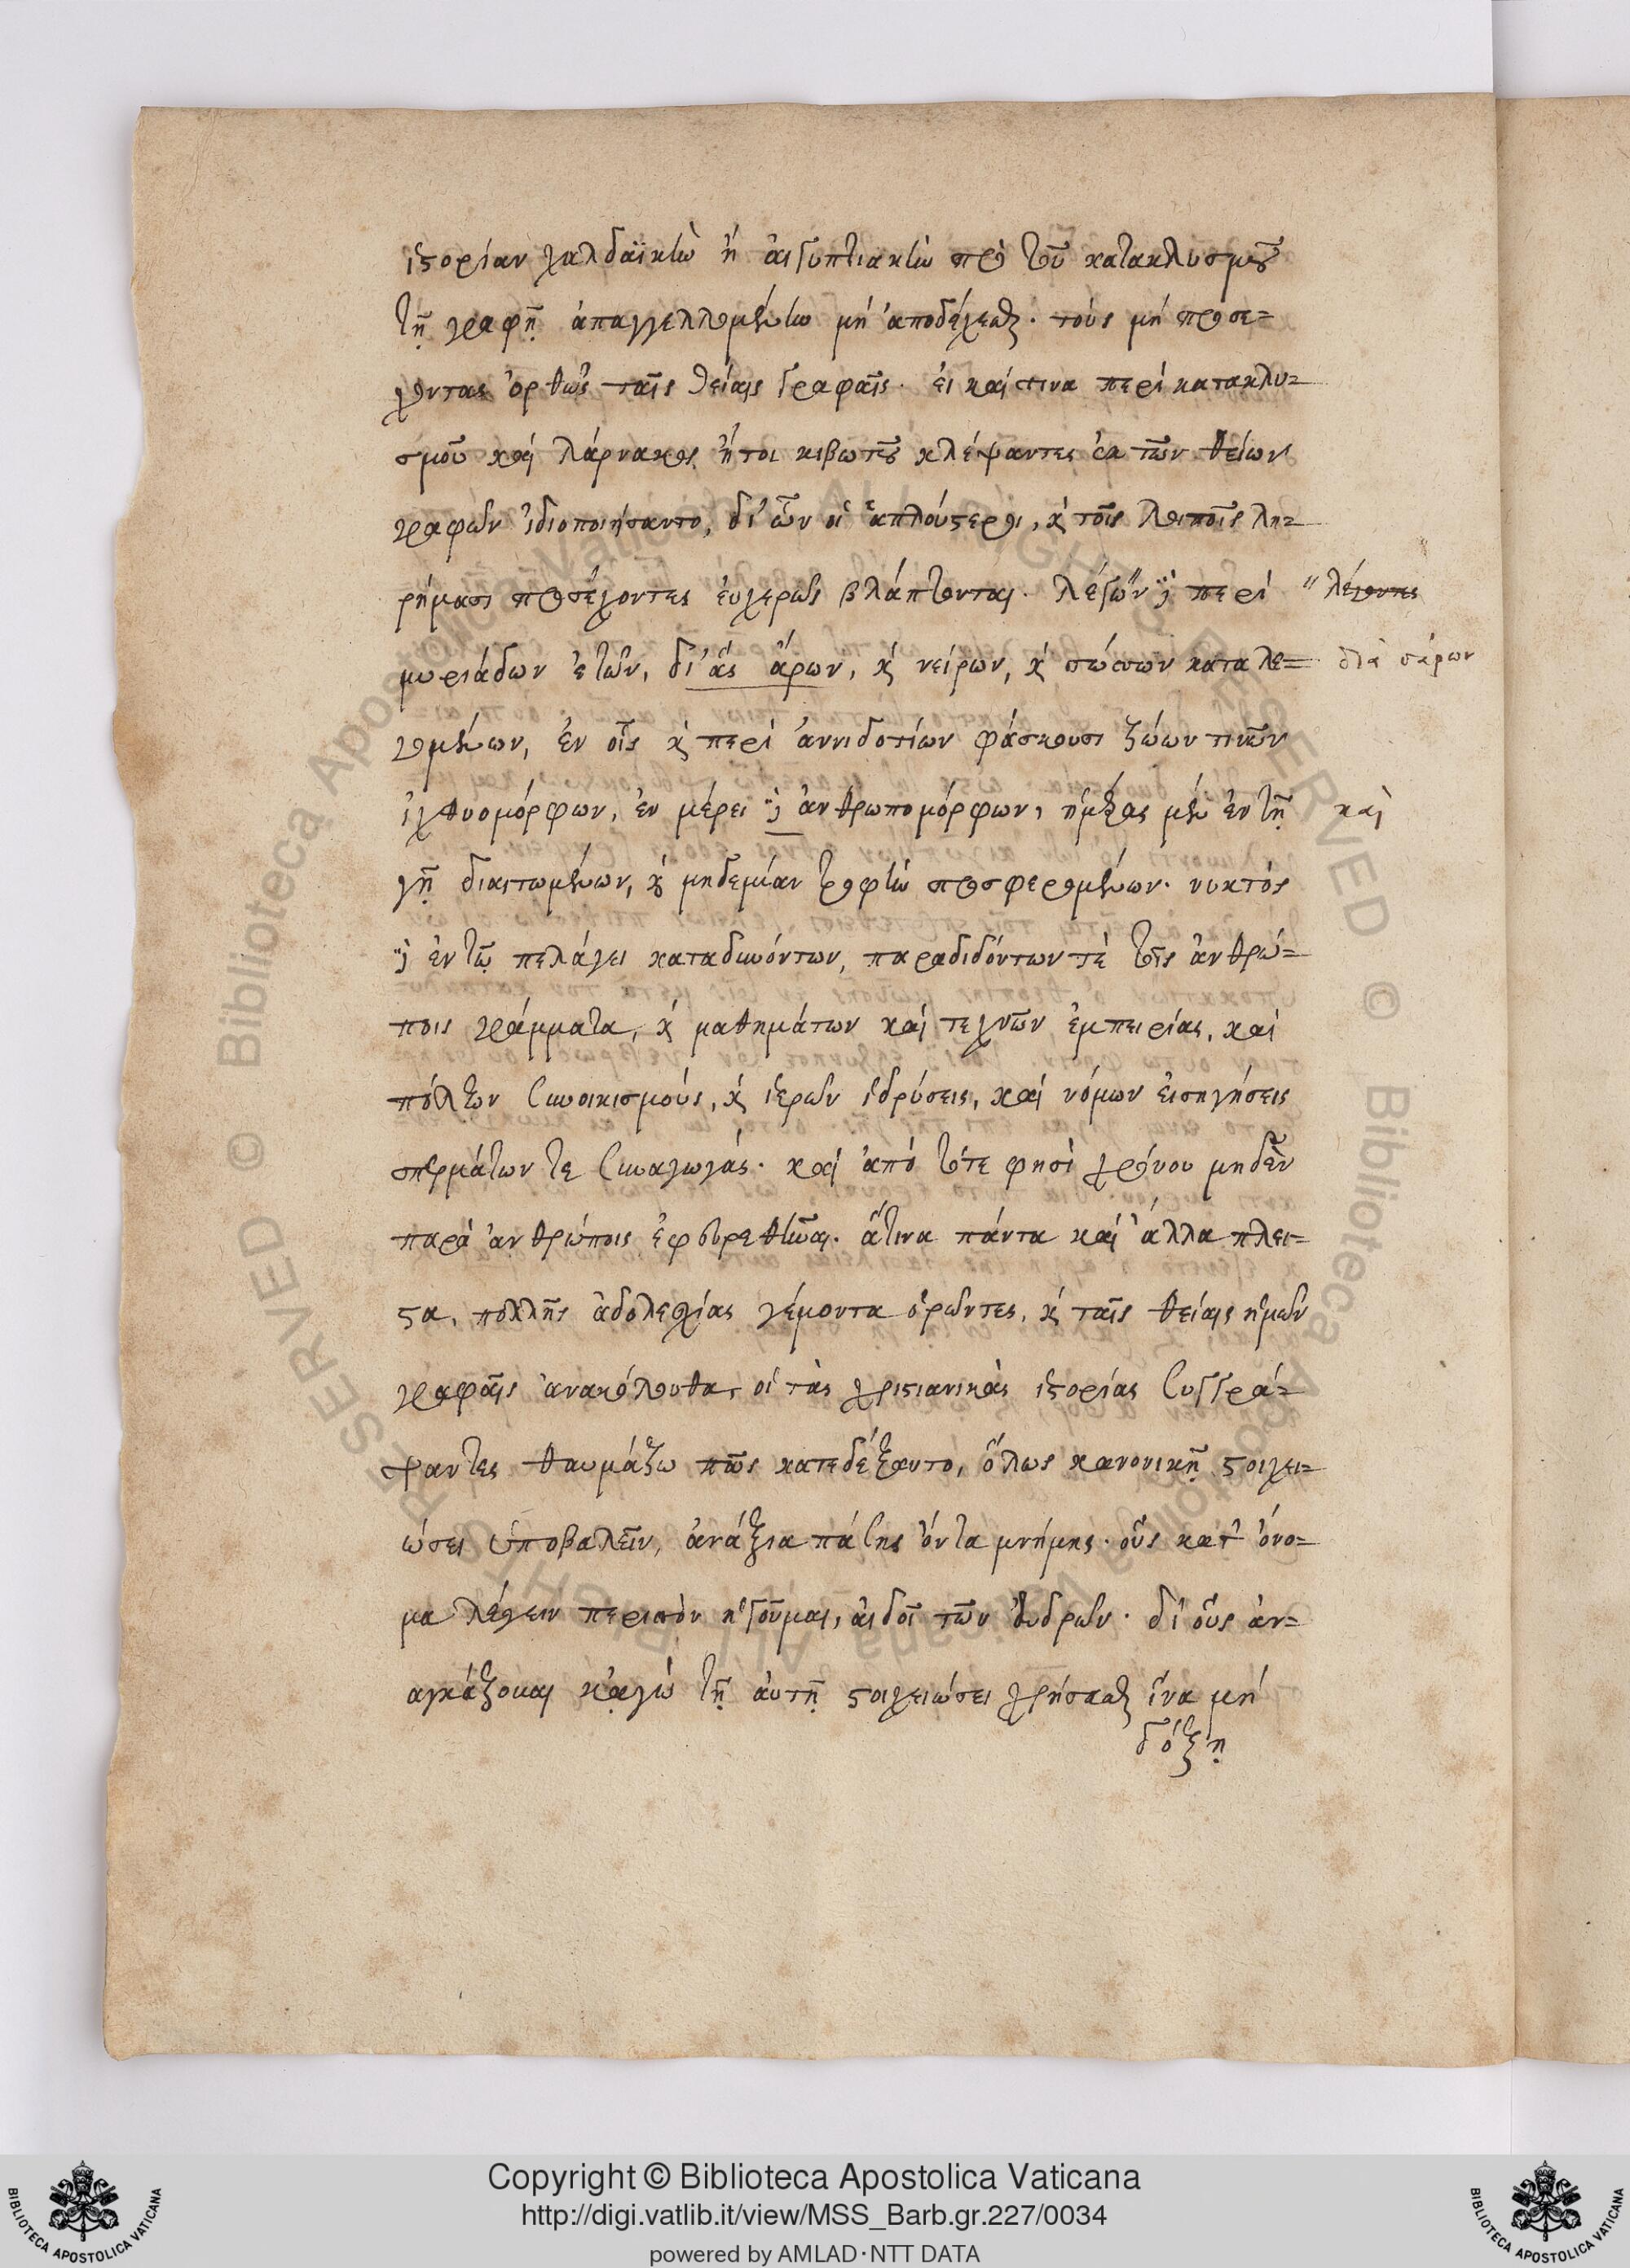 ἱστορίαν χαλδαϊκὴν ἢ αἰγυπτιακὴν πρὸ τοῦ κατακλυσμοῦ
τῇ γραφῇ ἀπαγγελλομένην μὴ ἀποδέχεσθαι. τοὺς μὴ προσέ-
χοντας ὀρθῶς ταῖς θείαις γραφαῖς. εἰ καί τινα περὶ κατακλυ-
σμοῦ καὶ λάρνακος ἤτοι κιβωτοῦ κλέψαντες ἐκ τῶν θείων
γραφῶν ἰδιοποιήσαντο, δι' ὧν οἱ ἁπλούστεροι, καὶ τοῖς λοιποῖς λη-
ρήμασι προσέχοντες εὐχερῶς βλάπτονται. λέγων δὲ περὶ " λέγοντες
μυριάδων ἐτῶν, δι' ἃς ἄρων, καὶ νείρων, καὶ σώσσων καταλε- διὰ σάρων
γομένων, ἐν οἷς καὶ περὶ ἀννιδοτίων φάσκουσι ζώων τινῶν
ἰχθυομόρφων, ἐν μέρει δὲ ἀνθρωπομόρφων, ἡμέρας μὲν ἐν τῇ καὶ
γῇ διαιτωμένων, καὶ μηδεμίαν τροφὴν προσφερομένων. νυκτὸς
δὲ ἐν τῷ πελάγει καταδυνόντων, παραδιδόντων τὲ τοῖς ἀνθρώ-
ποις γράμματα, καὶ μαθημάτων καὶ τεχνῶν ἐμπειρίας, καὶ
πόλεων συνοικισμοὺς, καὶ ἱερῶν ἱδρύσεις, καὶ νόμων εἰσηγήσεις
σπερμάτων τε συναγωγάς. καὶ ἀπὸ τότε φησὶ χρόνου μηδὲν
παρὰ ἀνθρώποις ἐφευρεθῆναι. ἅτινα πάντα καὶ ἄλλα πλεῖ-
στα, πολλῆς ἀδολεσχίας γέμοντα ὁρῶντες, καὶ ταῖς θείαις ἡμῶν
γραφαῖς ἀνακόλουθα, οἱ τὰς χριστιανικὰς ἱστορίας συγγρά-
ψαντες θαυμάζω πῶς κατεδέξαντο, ὅλως κανονικῇ στοιχει-
ώσει ὑποβαλεῖν, ἀνάξια πάσης ὄντα μνήμης. οὓς κατ' ὄνο-
μα λέγειν περισσὸν ἡγοῦμαι, αἰδοῖ τῶν ἀνδρῶν. δι' οὓς ἀν-
αγκάζομαι κἀγὼ τῇ αὐτῇ στοιχειώσει χρήσασθαι ἵνα μὴ
δόξῃ
Copyright © Biblioteca Apostolica Vaticana
http://digi.vatlib.it/view/MSS_Barb.gr.227/0034
powered by AMLAD·NTT DATA
BIBLIOTECA APOSTOLICA VATICANA
BIBLIOTECA APOSTOLICA VATICANA